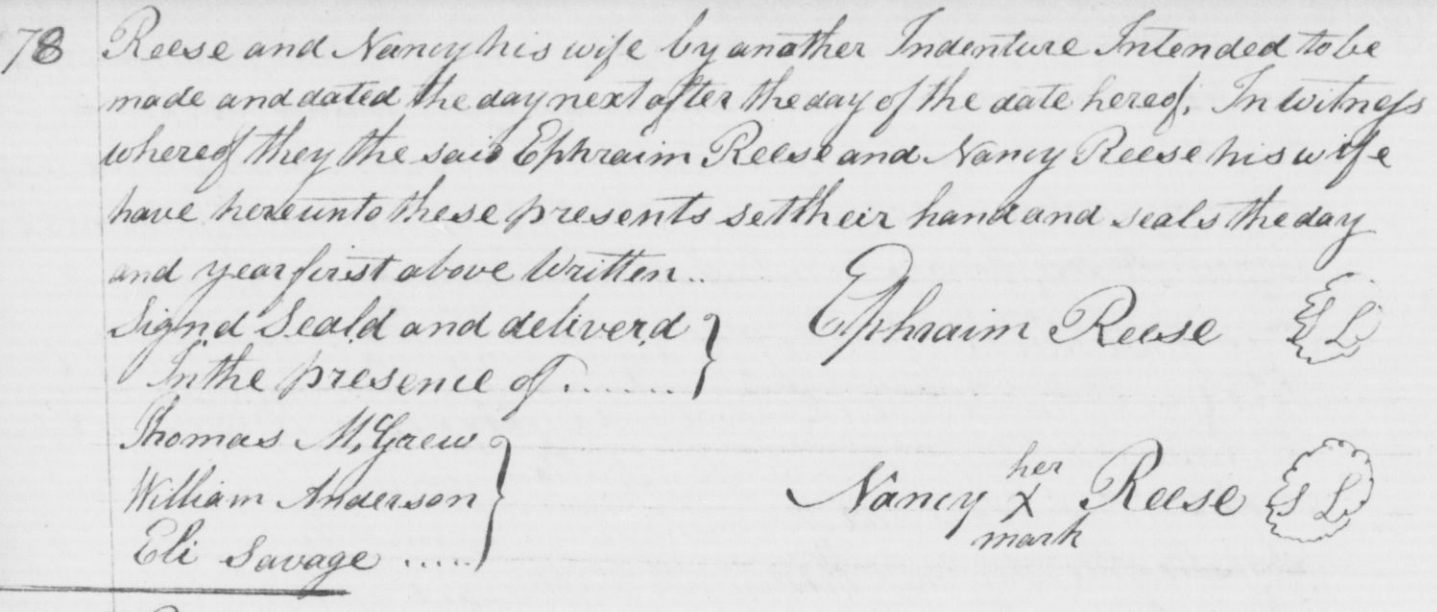 78 Reese and Nancy his wife by another Indenture Intended to be
made and dated the day next after the day of the date hereof. In witness
whereof they the said Ephraim Reese and Nancy Reese his wife
have hereunto these presents set their hand and seals the day
and year first above Written..
Signd Seald and deliverd } Ephraim Reese SL
In the presence of.......
Thomas McGrew
her
William Anderson } Nancy X Reese SL
mark
Eli Savage .....